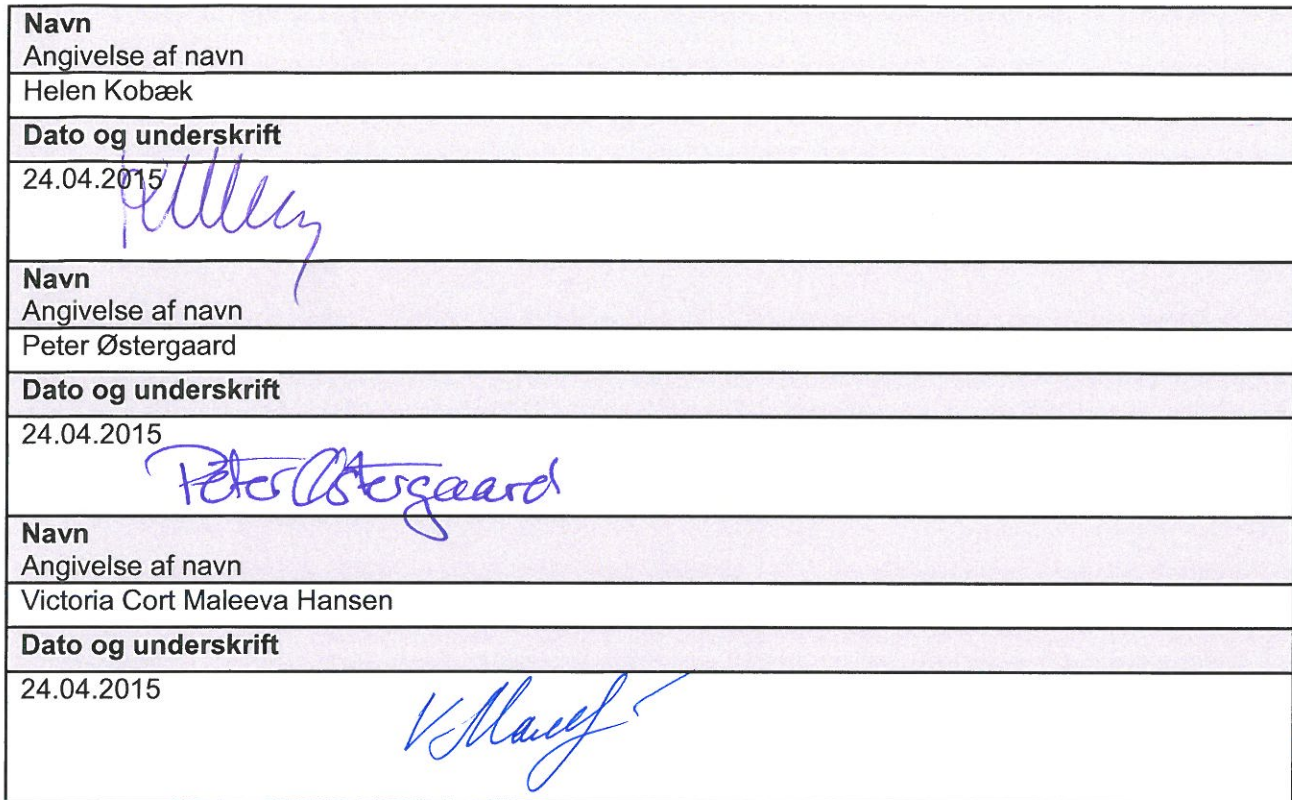 Navn
Angivelse af navn
Helen Kobæk
Dato og underskrift
24.04.2015
Navn
Angivelse af navn
Peter Østergaard
Dato og underskrift
24.04.2015
Peter Østergaard
Navn
Angivelse af navn
Victoria Cort Maleeva Hansen
Dato og underskrift
24.04.2015